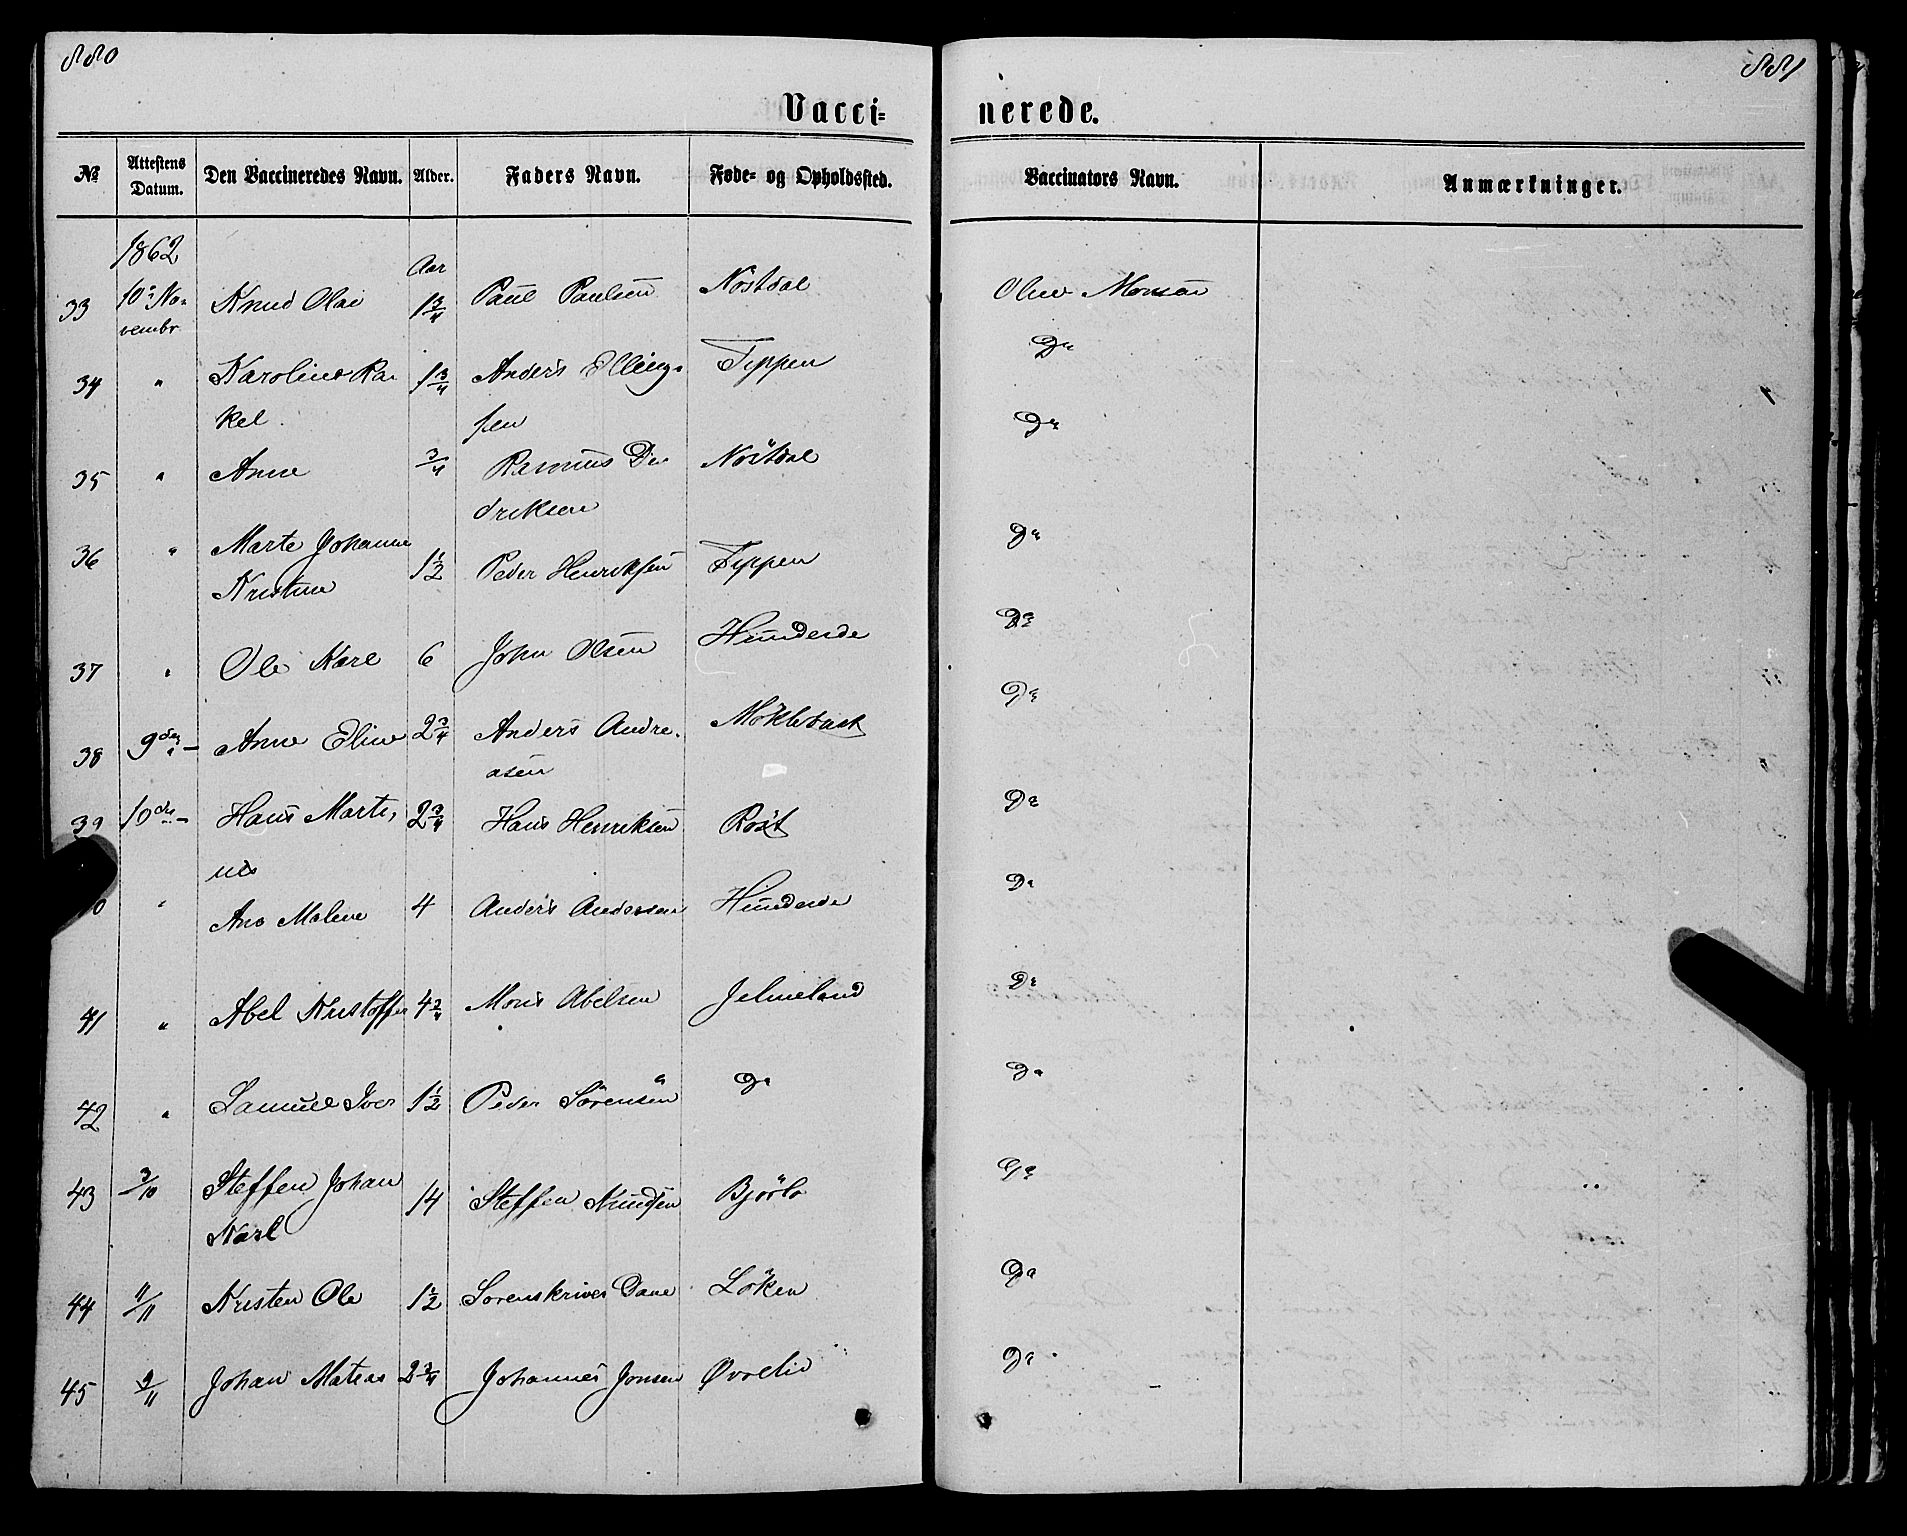 880
881
Vacci=
nerede.
№ Attestens Datum. Den Vaccineredes Navn. Alder. Faders Navn. Føde= og Opholdssted. Vaccinators Navn. Anmærkninger.
1862 Aar
33 10de No- Knud Olai 1 3/4 Paul Paulsen Nöstdal Monsen
vembr
34 " Karoline Ra- 1 3/4 Anders Ellings- Tippen Do
kel. sen
35 " Anne 3/4 Rasmus Di- Nöstdal Do
driksen
36 " Marte Johanne 1 1/2 Peder Henriksen Tippen Do
Kristine
37 " Ole Karl 6 John Olsen Hundeide Do
38 9de " Anne Eline 2 3/4 Anders Andre- Möklebust Do
asen
39 10de " Hans Marti- 2 3/4 Hans Henriksen Röst Do
nus
0 " Ane Malene 4 Anders Andersen Hundeide Do
41 " Abel Kristoffer 4 3/4 Mons Abelsen Jelmeland Do
42 " Samuel Iver 1 1/2 Peder Sörensen Do Do
43 3/10 Steffen Johan 14 Steffen Knudsen Björlo Do
Karl
44 11/11 Kristen Ole 1 1/2 Sorenskriver Dane Löken Do
45 9/11 Johan Matias 2 3/4 Johannes Jonsen Øvrelid Do